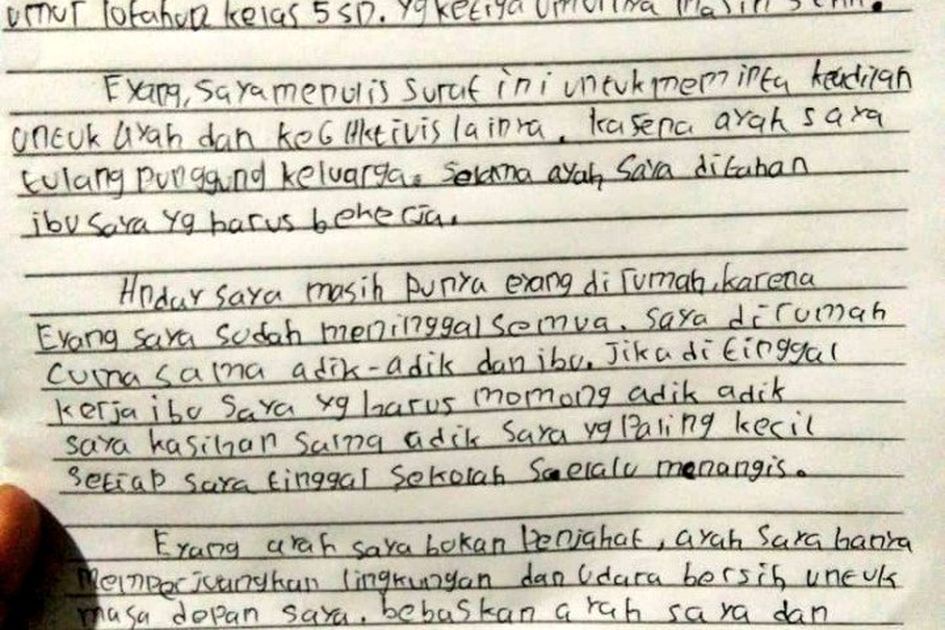 umur 10 tahun kelas 5 SD. yg ketiga umurnya masih
Eyang, saya menulis surat ini untuk meminta keadilan
untuk Ayah dan ke 6 Aktivis lainya. karena ayah saya
tulang punggung keluarga. Selama ayah saya ditahan
ibu saya yg harus bekerja.
Anday saya masih punya eyang di rumah, karena
Eyang saya sudah meninggal semua. saya di rumah
cuma sama adik-adik dan ibu. Jika di tinggal
kerja ibu saya yg harus momong adik adik
saya kasihan sama adik saya yg Paling kecil
setiap saya tinggal sekolah selalu menangis.
Eyang ayah saya bukan Penjahat, ayah saya hanya
memperjuangkan lingkungan dan Udara bersih untuk
masa depan saya. bebaskan ayah saya dan